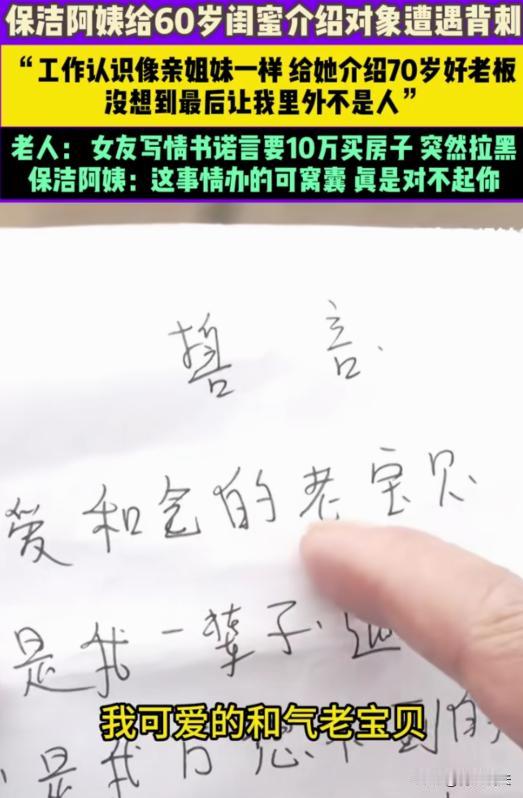 保洁阿姨给60岁闺蜜介绍对象遭遇背刺
“工作认识像亲姐妹一样 给她介绍70岁好老板
没想到最后让我里外不是人”
老人： 女友写情书诺言要10万买房子 突然拉黑
保洁阿姨：这事情办的可窝囊 真是对不起你
誓 言
爱和气的老宝贝
是我一辈子
我可爱的和气老宝贝
是我万想不到的